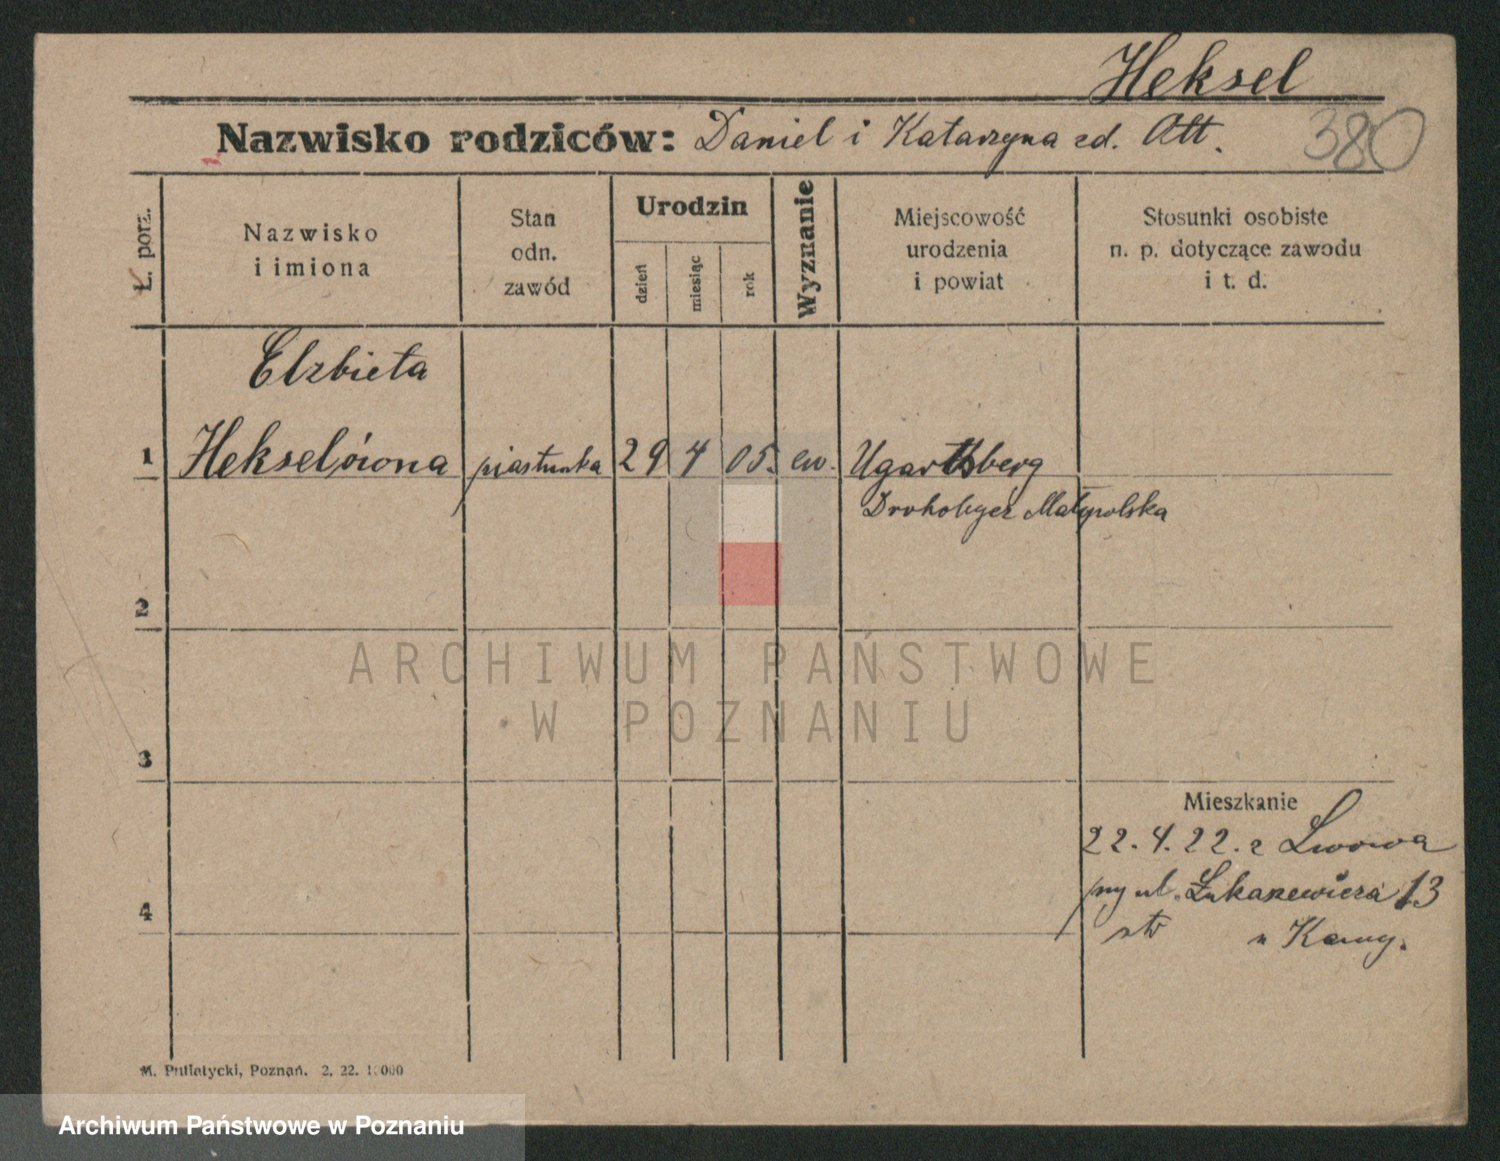 Heksel
Nazwisko rodziców: Daniel i Katarzyna zd. Att.
380
Ł. porz.
Nazwisko
i imiona
Stan
odn.
zawód
Urodzin
dzień
miesiąc
rok
Wyznanie
Miejscowość
urodzenia
i powiat
Stosunki osobiste
n. p. dotyczące zawodu
i t. d.
Elzbieta
1 Hekselówna piastunka 29 4 05. ew. Ugartsberg
Drohobycz Małopolska
2
3
4
Mieszkanie
22.4.22. z Lwowa
przy ul. Łukaszewicza 13
u
M. Putiatycki, Poznań. 2. 22. 10000
ARCHIWUM PAŃSTWOWE
W POZNANIU
Archiwum Państwowe w Poznaniu